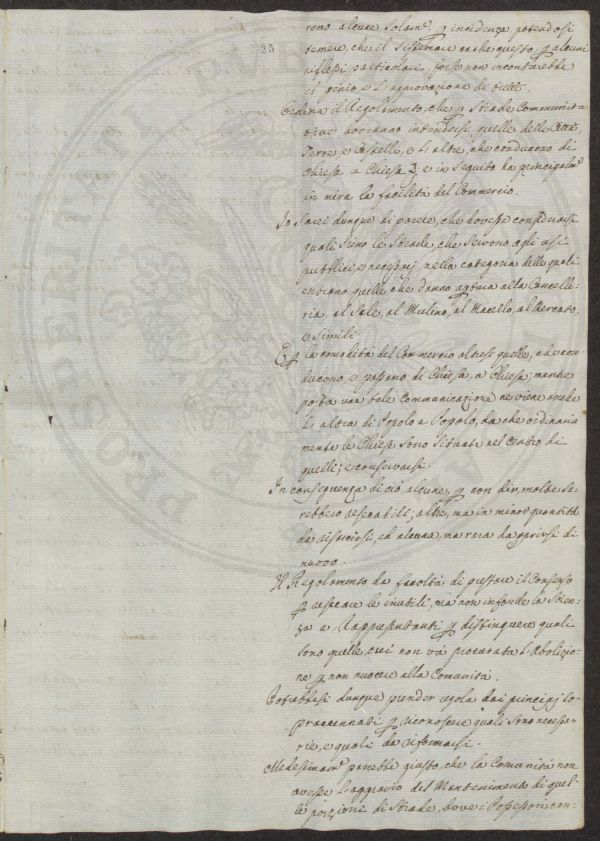 25
remo alcune solam.e p incidenza potendosi
temere, che il sistemare anche questo, p alcuni
riflessi particolari, forse non incontrerebbe
il genio e l'approvazione di tutti.
Ordina il Regolamento, che p Strade Communita
tive dovranno intendersi quelle delle Città,
Terre, e Castelli, e l'altre, che conducono di
Chiesa a Chiesa, e in seguito ha principalm.e
in mira la facilità del Commercio.
Io sarei dunque di parere, che dovesse considerarsi
quali sieno le Strade, che servono agli usi
pubblici, e necessarj, nella categoria delle quali
entrano quelle, che danno aggiua alla Cancelle-
ria, al Sale, al Mulino, al Macello, al Mercato,
e simili
E p la comodità del Commercio altresì quelle, che con-
ducono, e passano di Chiesa, a Chiesa; mentre
posta una tale communicazione ne viene anche
l'altra di Popolo a Popolo, da che ordinaria
mente le Chiese sono situate nel centro di
quelli; e conservarsi.
In conseguenza di ciò, alcune, p non dir, molte sa-
rebbero resecabili; altre, ma in minor quantità
da riunirsi, ed alcuna, ma rara da aprirsi di
nuovo.
Il Regolamento da facoltà di prestare il Consenso
p resecare le inutili, ma non infonde la Scien-
za a Rappresentanti p distinguere quali
sono quelle, cui non và procurata l'Abolizio-
ne p non nuocere alla Comunità.
Potrebbesi dunque prender regola dai principj so-
praccennati p riconoscere quali sono necessa-
rie, e quali da riformarsi.
Medesimam.e parrebbe giusto, che la Comunità non
avesse l'aggravio del Mantenimento di quel-
le porzioni di Strade, dove i Possessori con-